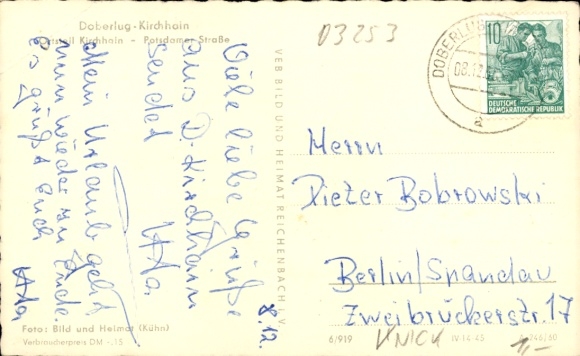 Doberlug-Kirchhain
Ortsteil Kirchhain - Potsdamer Straße
03253
Viele liebe Grüße
aus D.-Kirchhain
sendet
Uta
8.12.
Mein Urlaub geht
nun wieder zu Ende.
Es grüßt Euch
Uta
VEB BILD UND HEIMAT REICHENBACH i. V.
DOBERLUG
08.12
a
10
DEUTSCHE
DEMOKRATISCHE REPUBLIK
Herrn
Dieter Bobrowski
Berlin/Spandau
Zweibrückerstr. 17
Foto: Bild und Heimat (Kühn)
Verbraucherpreis DM -,15
6/919
IV-14-45
1,-